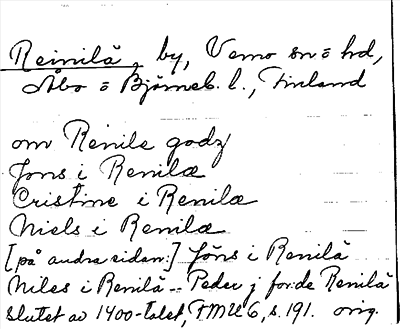 Reinilä, by, Vemo sn = hd,
Åbo = Björneb. l., Finland
om Renile godz
Jöns i Renilæ
Cristine i Renilæ
Niels i Renilæ
[på andra sidan:] Jöns i Renilä
Niles i Renilä -- Peder j for:de Renilä
slutet av 1400-talet, FMU 6, s. 191. orig.